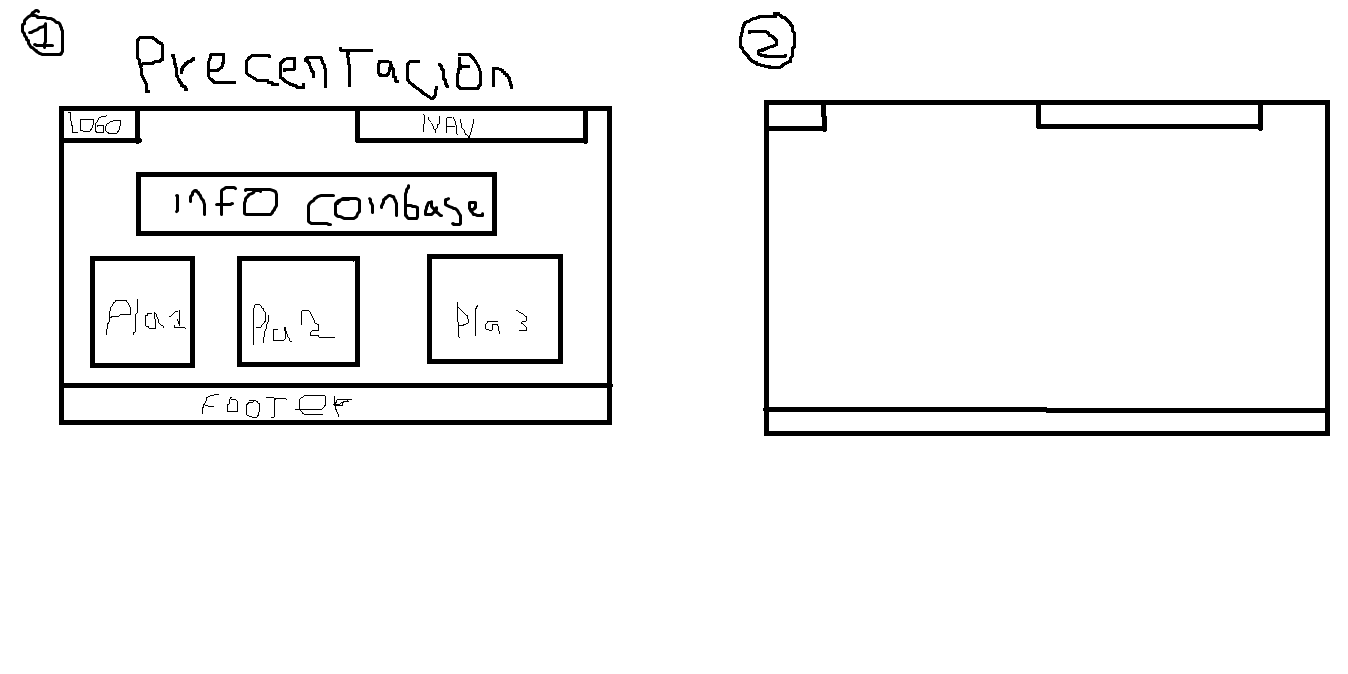 1
2
Precentación
LOGO
NAV
info coinbase
Pla1
Pla2
Pla3
FOOTER